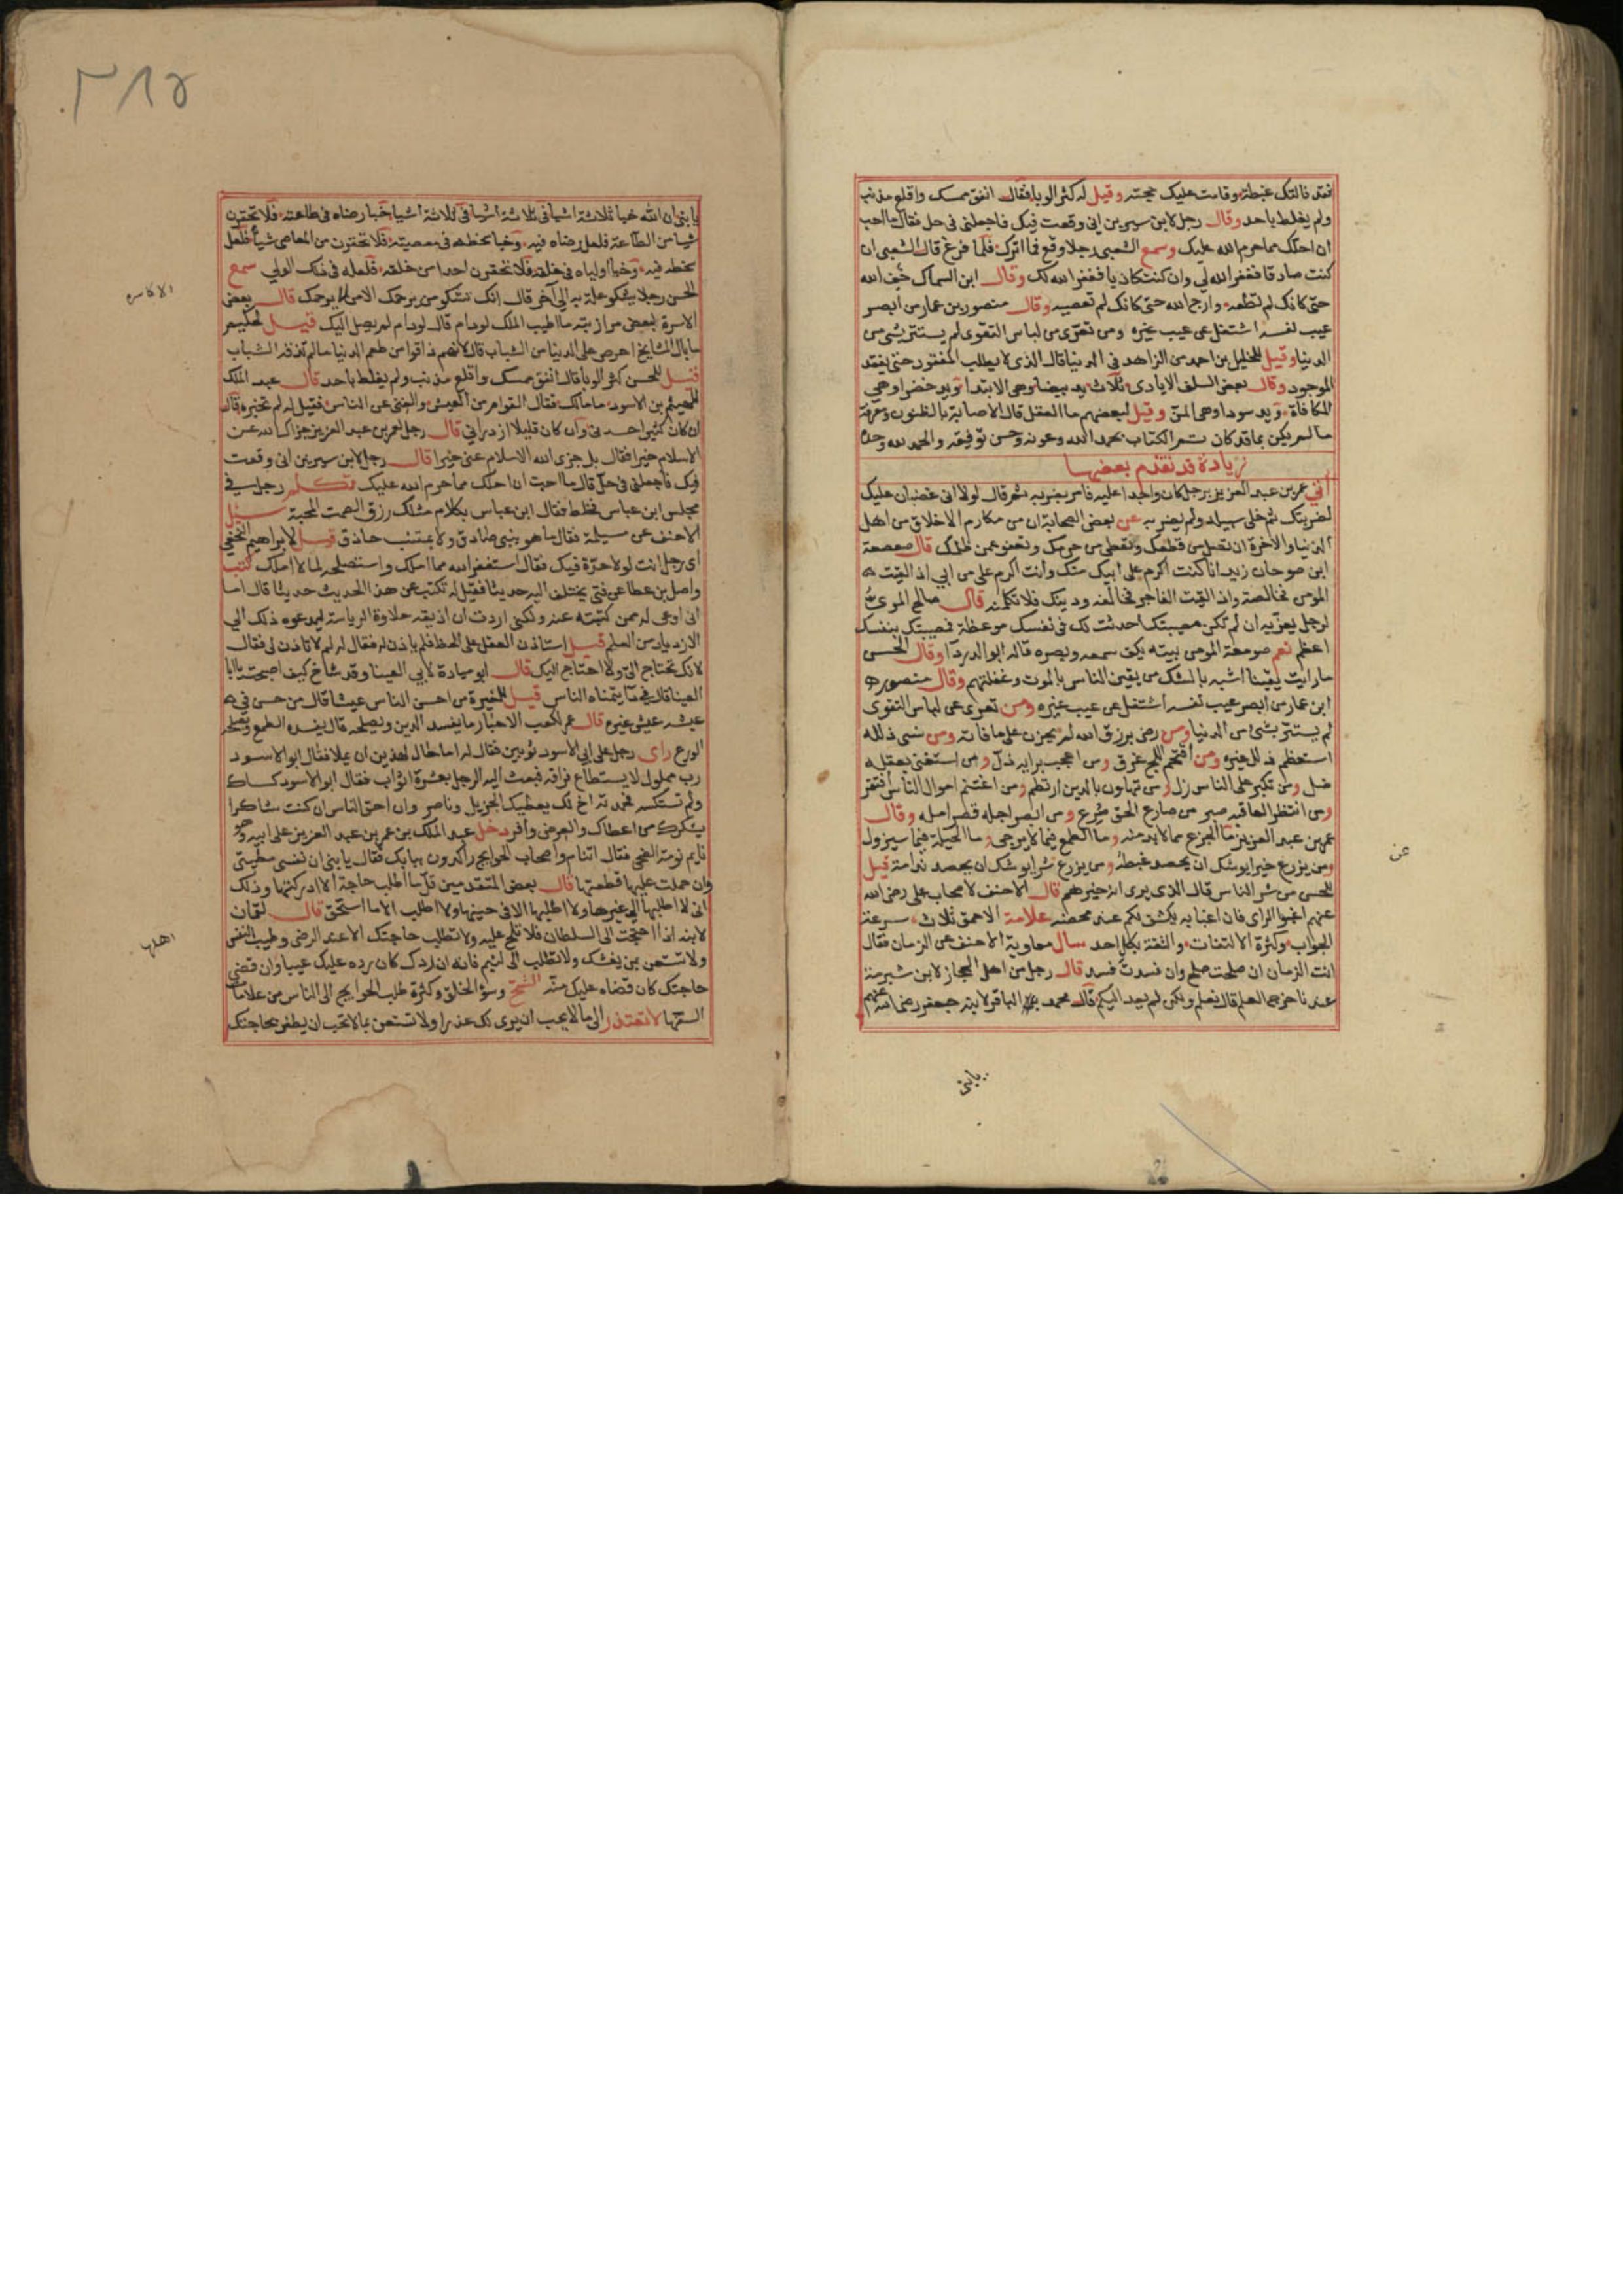 فقد نالتك غبطة وقامت عليك حجته وقيل له كثر الوبا فقال انفق ممسك واقلع مذنب
ولم يغلط باحد وقال رجل لابن سيرين اني وقعت فيك فاجعلني في حل فقال ما احب
ان احلك مما حرم الله عليك وسمع الشعبي رجلا وقع فما اترك فلما فرغ قال الشعبي ان
كنت صادقا فغفر الله لي وان كنت كاذبا فغفر الله لك وقال ابن السماك خف الله
حتى كانك لم تطعه وارج الله حتى كانك لم تعصيه وقال منصور بن عمار من ابصر
عيب نفسه اشتغل عن عيب غيره ومن تعرى من لباس التقوى لم يستتر بشي من
الدنيا وقيل للخليل بن احمد من الزاهد في الدنيا قال الذي لا يطلب المفقود حتى يفقد
الموجود وقال بعض السلف الايادي ثلاث يد بيضا وهي الابتدا ويد خضرا وهي
المكافاة ويد سودا وهي المن وقيل لبعضهم ما العقل قال الاصابة بالظنون ومعرفة
ما لم يكن بما قد كان تم الكتاب بحمد الله وعونه وحسن توفيقه والحمد لله وحده
زيادة قد تقدم بعضها
اتي عمر بن عبد العزيز برجل كان واجدا عليه فامر بضربه ثم قال لولا اني غضبان عليك
لضربتك ثم خلى سبيله ولم يضربه عن بعض الصحابة ان من مكارم الاخلاق من اهل
الدنيا والاخرة ان تصل من قطعك وتعطي من حرمك وتعفو عمن ظلمك قال صعصعة
ابن صوحان زيد انا كنت اكرم على ابيك منك وانت اكرم علي من ابني اذا لقيت
المومن فخالصه واذا لقيت الفاجر فخالفه ودينك فلا تكلمنه قال صالح المري
لرجل يعزيه ان لم تكن مصيبتك احدثت لك في نفسك موعظة فمصيبتك بنفسك
اعظم نعم صومعة المومن بيته يكف سمعه وبصره قاله ابو الدردا وقال الحسن
ما رايت يقينا اشبه بالشك من يقين الناس بالموت وغفلتهم وقال منصور
ابن عمار من ابصر عيب نفسه اشتغل عن عيب غيره ومن تعرى عن لباس التقوى
لم يستتر بشي من الدنيا ومن رضي برزق الله لم يحزن على ما فاته ومن نسي ذلله
استعظم ذلل غيره ومن اقتحم اللجج غرق ومن اعجب برايه ذل ومن استغنى بعقله
ضل ومن تكبر على الناس زل ومن تهاون بالدين ارتطم ومن اغتنم اموال الناس افتقر
ومن انتظر العاقبه صبر من صارع الحق صرع ومن ابصر اجله قصر امله وقال
عمر بن عبد العزيز ما الجزع مما لابد منه وما الطمع فيما لا يرجى وما الحيلة فيما سيزول
ومن يزرع خيرا يوشك ان يحصد غبطه ومن يزرع شرا يوشك ان يحصد ندامة قيل
للحسن من شر الناس قال الذي يرى انه خيرهم قال الاحنف لاصحاب علي رضي الله
عنهم اغبوا الراي فان اغبابه يكشف لكم عن محضه علامة الاحمق ثلاث سرعة
الجواب وكثرة الالتفات والثقة بكل احد سال معاوية الاحنف عن الزمان فقال
انت الزمان ان صلحت صلح وان فسدت فسد قال رجل من اهل الحجاز لابن شبرمة
عندنا خرج العلم قال نعلم ولكن لم يعد اليكم قال محمد الباقر لابنه جعفر رضي الله عنهم
يا بني
عن
٣٨٥
يا بني ان الله خبا ثلاثة اشيا في ثلاثة اشيا خبا رضاه في طاعته فلا تحقرن
شيا من الطاعة فلعل رضاه فيه وخبا سخطه في معصيته فلا تحقرن من المعاصي شيا فلعل
سخطه فيه وخبا اولياه في خلقه فلا تحقرن احدا من خلقه فلعله في ذلك الولي سمع
الحسن رجلا يشكو علة به الى آخر قال انك تشكو من يرحمك الا من لا يرحمك قال بعض
الاسرة لبعض مرازبته ما اطيب الملك لو دام قال لو دام لم يصل اليك قيل لحكيم
ما بال المشايخ احرص على الدنيا من الشباب قال لانهم ذاقوا من طعم الدنيا ما لم تذقه الشباب
قيل للحسن كثر الوبا قال انفق ممسك واقلع مذنب ولم يغلط باحد قال عبد الملك
للهيثم بن الاسود ما مالك فقال القوام من العيش والغنى عن الناس فقيل له لم تخبره قال
ان كان كثيرا حسدني وان كان قليلا ازدراني قال رجل لعمر بن عبد العزيز جزاك الله عن
الاسلام خيرا فقال بل جزى الله الاسلام عني خيرا قال رجل لابن سيرين اني وقعت
فيك فاجعلني في حل قال ما احب ان احلك مما حرم الله عليك تكلم رجل في
مجلس ابن عباس فخلط فقال ابن عباس بكلام مثلك رزق الصمت المحبة سئل
الاحنف عن مسيلمة فقال ما هو بنبي صادق ولا بمتنب حاذق قيل لابراهيم النخعي
اي رجل انت لولا حدة فيك فقال استغفر الله مما املك واستصلحه لما لا املك كتب
واصل بن عطا عن فتى يختلف اليه حديثا فقيل له تكتب عن هذا الحديث حديثا قال اما
اني اوعى له ممن كتبته عنه ولكني اردت ان اذيقه حلاوة الرياسة ليدعوه ذلك الى
الازدياد من العلم قيل استاذن العقل على الحظ فلم ياذن له فقال له لم لا تاذن لي فقال
لانك تحتاج الي ولا احتاج اليك قال ابو ميادة لابي العينا وقد شاخ كيف اصبحت يا ابا
العينا قال في ما يتمناه الناس قيل للمغيرة من احسن الناس عيشا قال من حسن في
عيشه عيش غيره قال عمر لكعب الاحبار ما يفسد الدين ويصلحه قال يفسده الطمع ويصلحه
الورع راى رجل على ابي الاسود ثوبين فقال له اما حال لهذين ان يملا فقال ابو الاسود
رب مملول لا يستطاع فراقه فبعث اليه الرجل بعشرة اثواب فقال ابو الاسود كساك
ولم تستكسه فحمدته اخ لك يعطيك الجزيل وناصر وان احق الناس ان كنت شاكرا
بشكرك من اعطاك والعرض وافر دخل عبد الملك بن عمر بن عبد العزيز على ابيه وهو
نايم نومة الضحى فقال اتنام واصحاب الحوايج راكدون ببابك فقال يا بني ان نفسي مطيتي
وان حملت عليها قطعتها قال بعض المتقدمين قل ما اطلب حاجة الا ادركتها وذلك
اني لا اطلبها الى غيرها ولا اطلبها الا في حينها ولا اطلب الا ما استحق قال لقمان
لابنه اذا احتجت الى السلطان فلا تلح عليه ولا تطلب حاجتك الا عند الرضى وطيب النفس
ولا تستعن بمن يغشك ولا تطلب الى لئيم فانه ان ردك كان رده عليك عيبا وان قضى
حاجتك كان قضاه عليك منه الشح وسؤ الخلق وكثرة طلب الحوايج الى الناس من علامات
السفها لا تعتذر الى ما لا يحب ان يرى لك عذرا ولا تستعن بما لا تحب ان يظفر بحاجتك
الاكاسره
اهلها